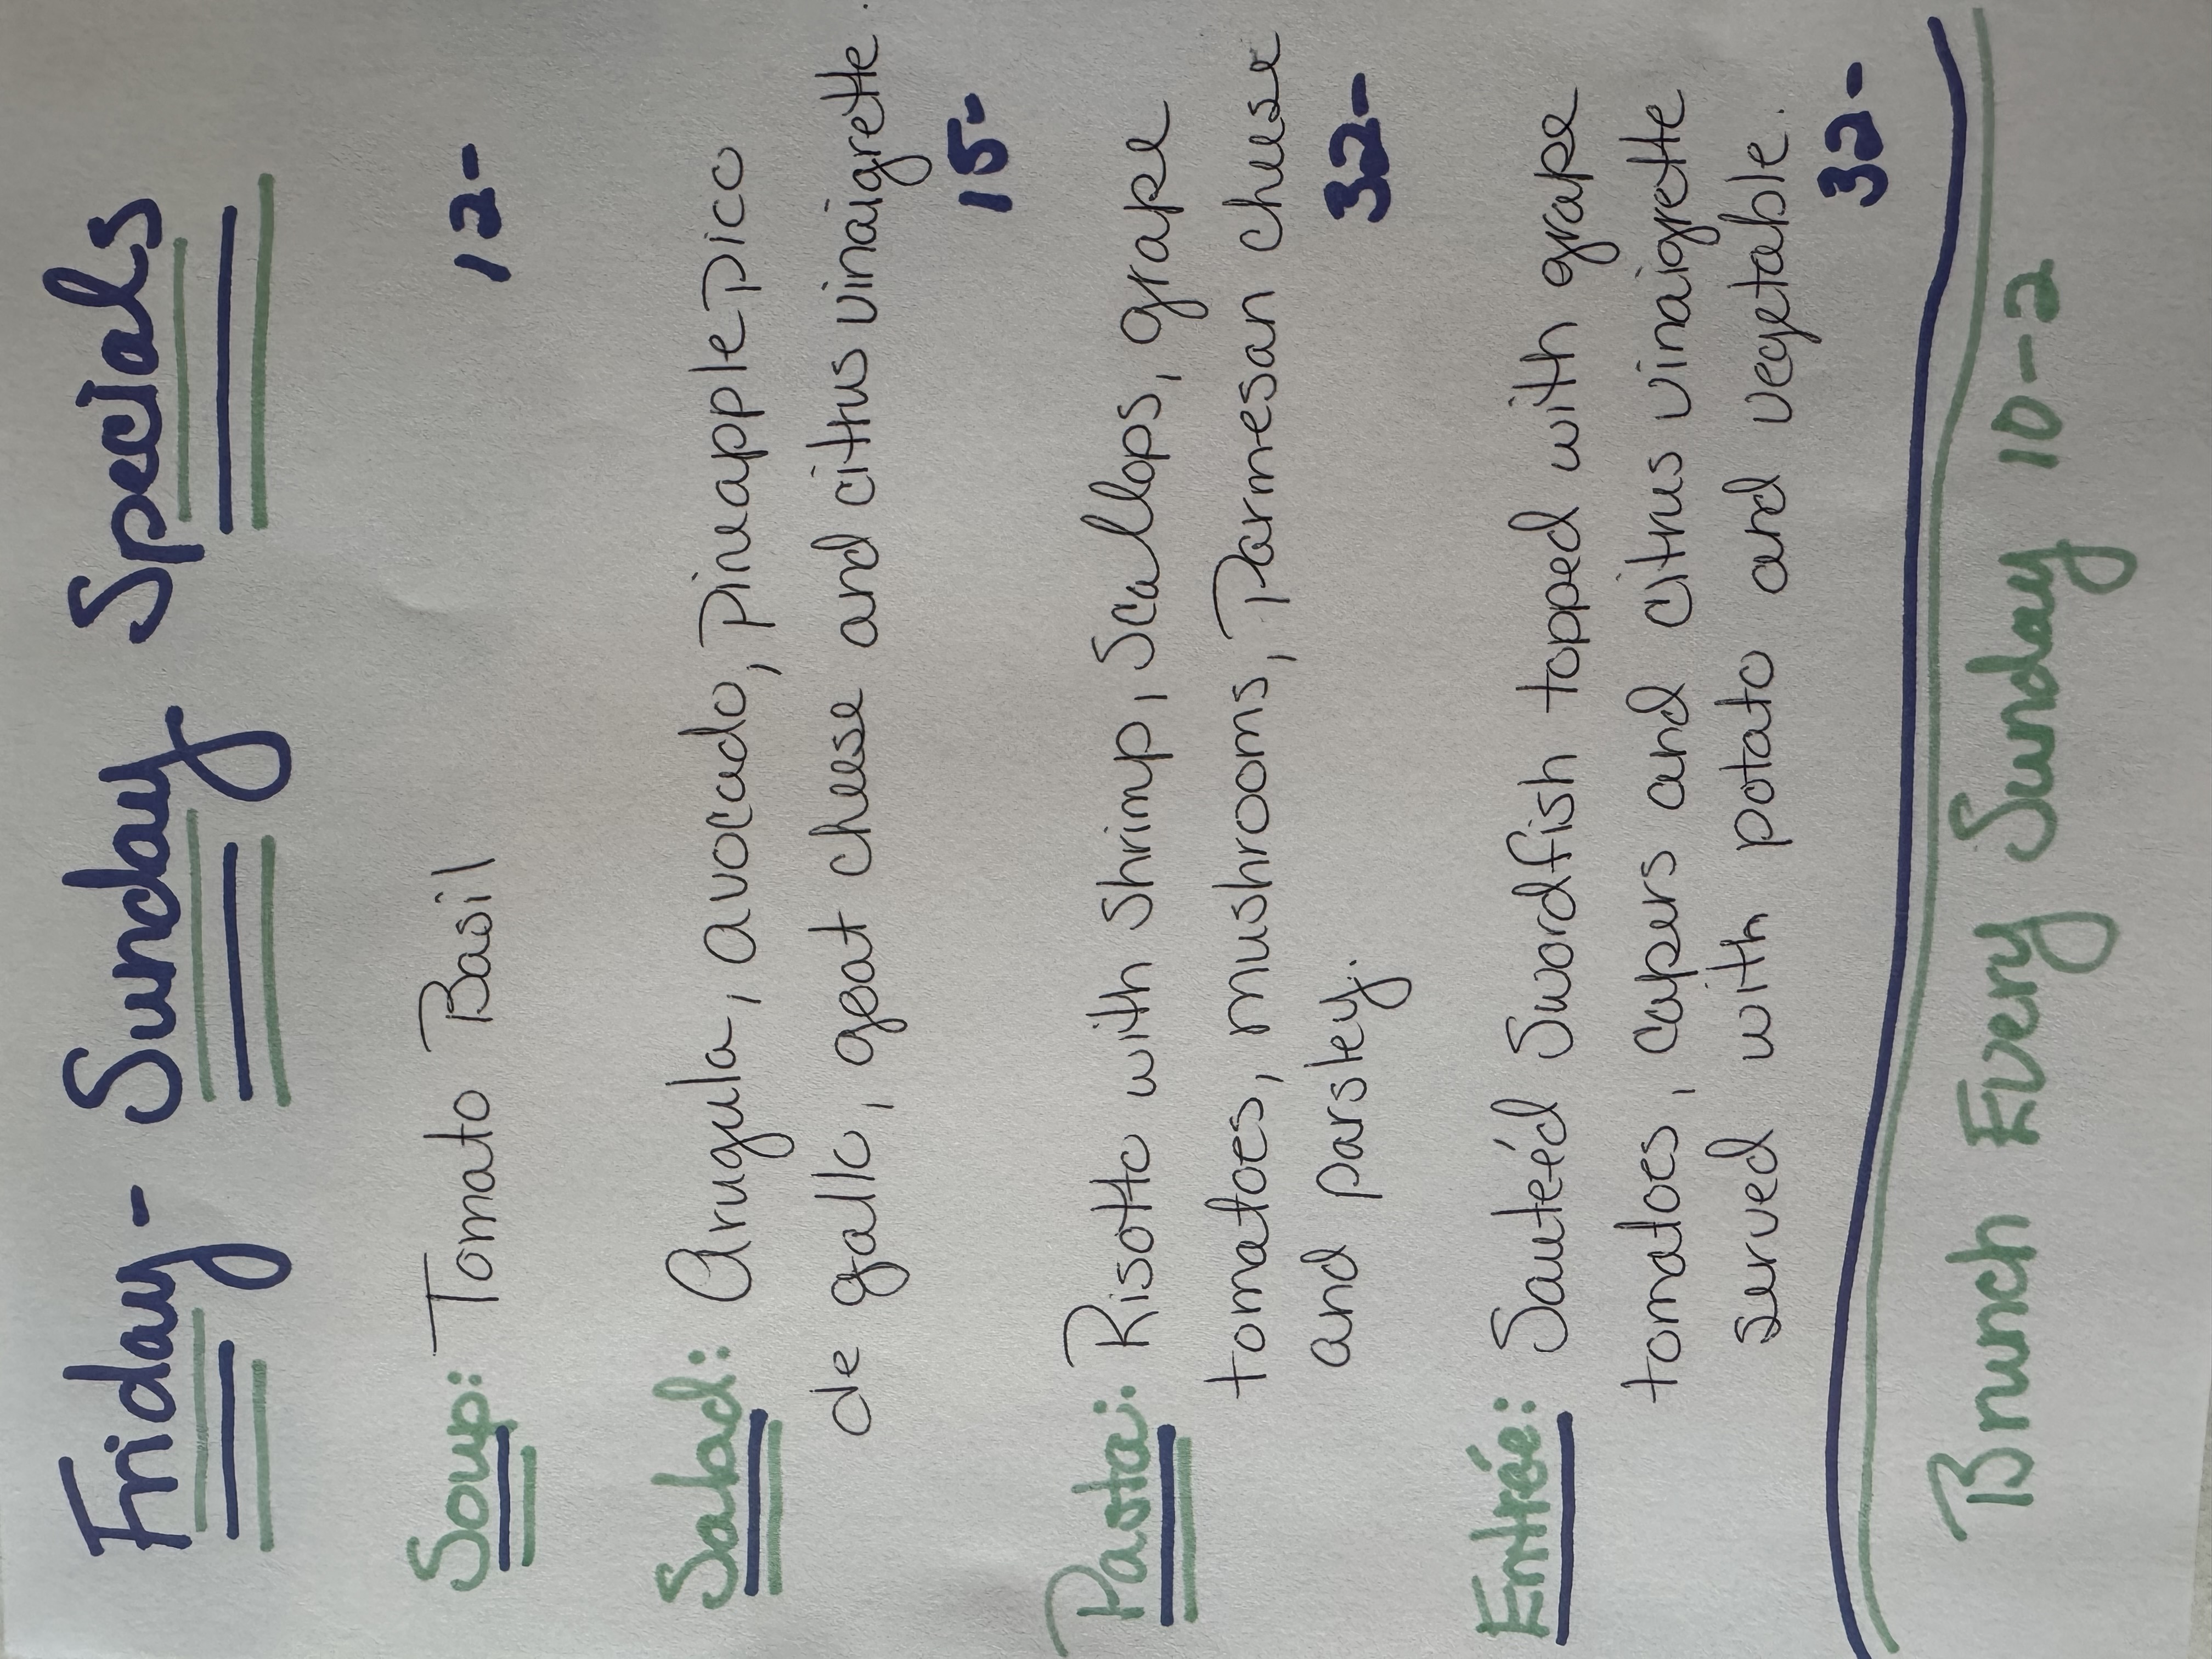 Friday - Sunday Specials
Soup: Tomato Basil 12-
Salad: Arugula, avocado, Pineapple pico
de gallo, goat cheese and citrus vinaigrette.
15-
Pasta: Risotto with shrimp, scallops, grape
tomatoes, mushrooms, Parmesan cheese
and parsley. 32-
Entrée: Sauteéd Swordfish topped with grape
tomatoes, capers and citrus vinaigrette
served with potato and vegetable.
32-
Brunch Every Sunday 10-2